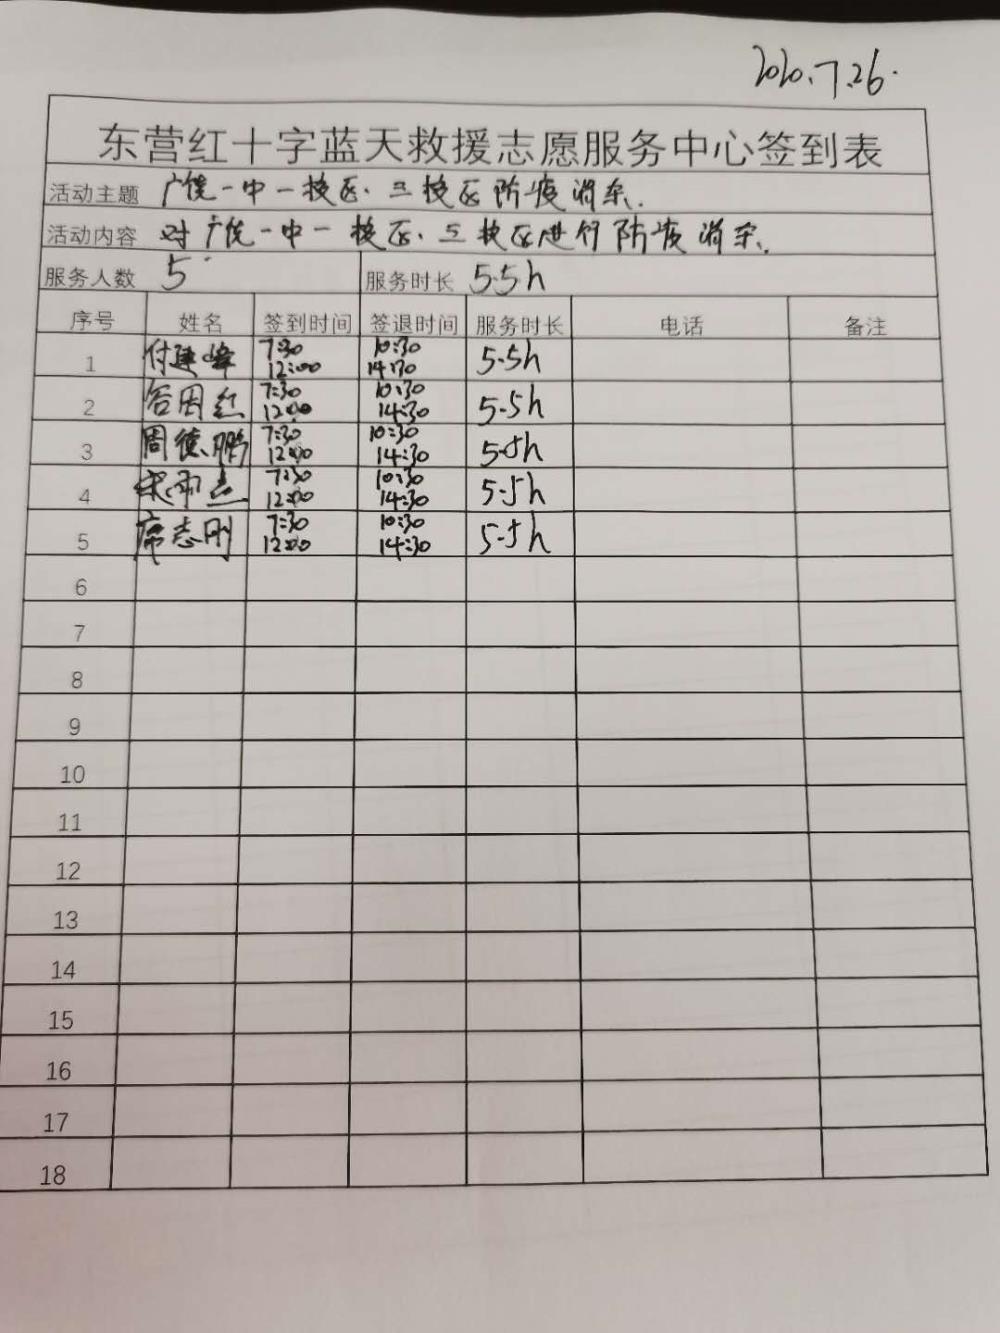 2020.7.26.
东营红十字蓝天救援志愿服务中心签到表
活动主题 广饶一中一校区、三校区防疫消杀.
活动内容 对广饶一中一校区、三校区进行防疫消杀.
服务人数 5 服务时长 5.5h
序号 姓名 签到时间 签退时间 服务时长 电话 备注
1 付建峰 7:30 12:00 10:30 14:30 5.5h
2 7:30 12:00 10:30 14:30 5.5h
3 周德鹏 7:30 12:00 10:30 14:30 5.5h
4 7:30 12:00 10:30 14:30 5.5h
5 席志刚 7:30 12:00 10:30 14:30 5.5h
6
7
8
9
10
11
12
13
14
15
16
17
18